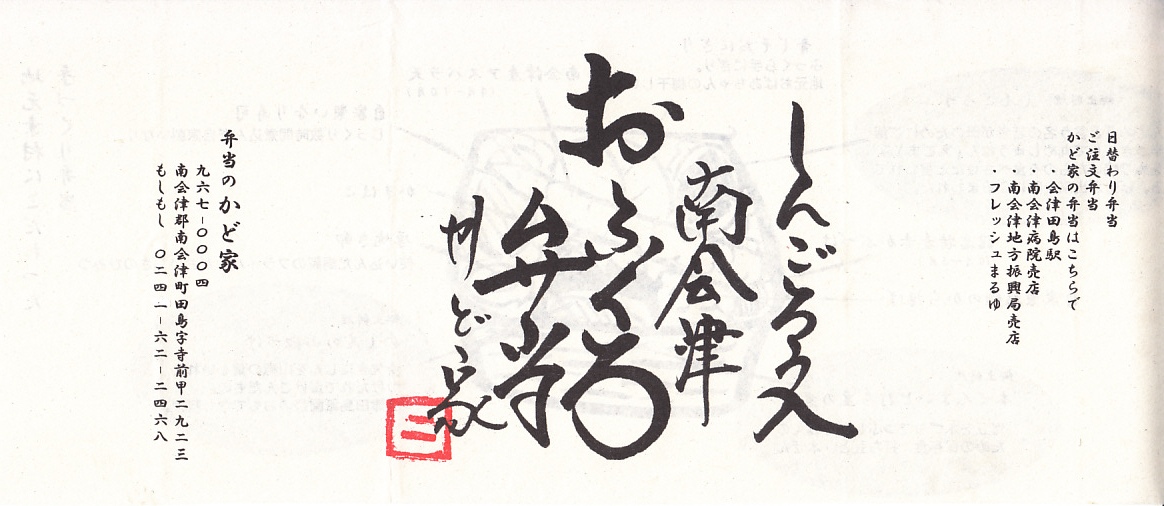 日替わり弁当
ご注文弁当
かど家の弁当はこちらで
・会津田島駅
・南会津病院売店
・南会津地方振興局売店
・フレッシュまるゆ
しんごろう文
南会津
おふくろ
弁当
かど家
弁当のかど家
九六七－〇〇〇四
南会津郡南会津町田島字寺前甲二九二三
もしもし　〇二四一－六二－二四六八